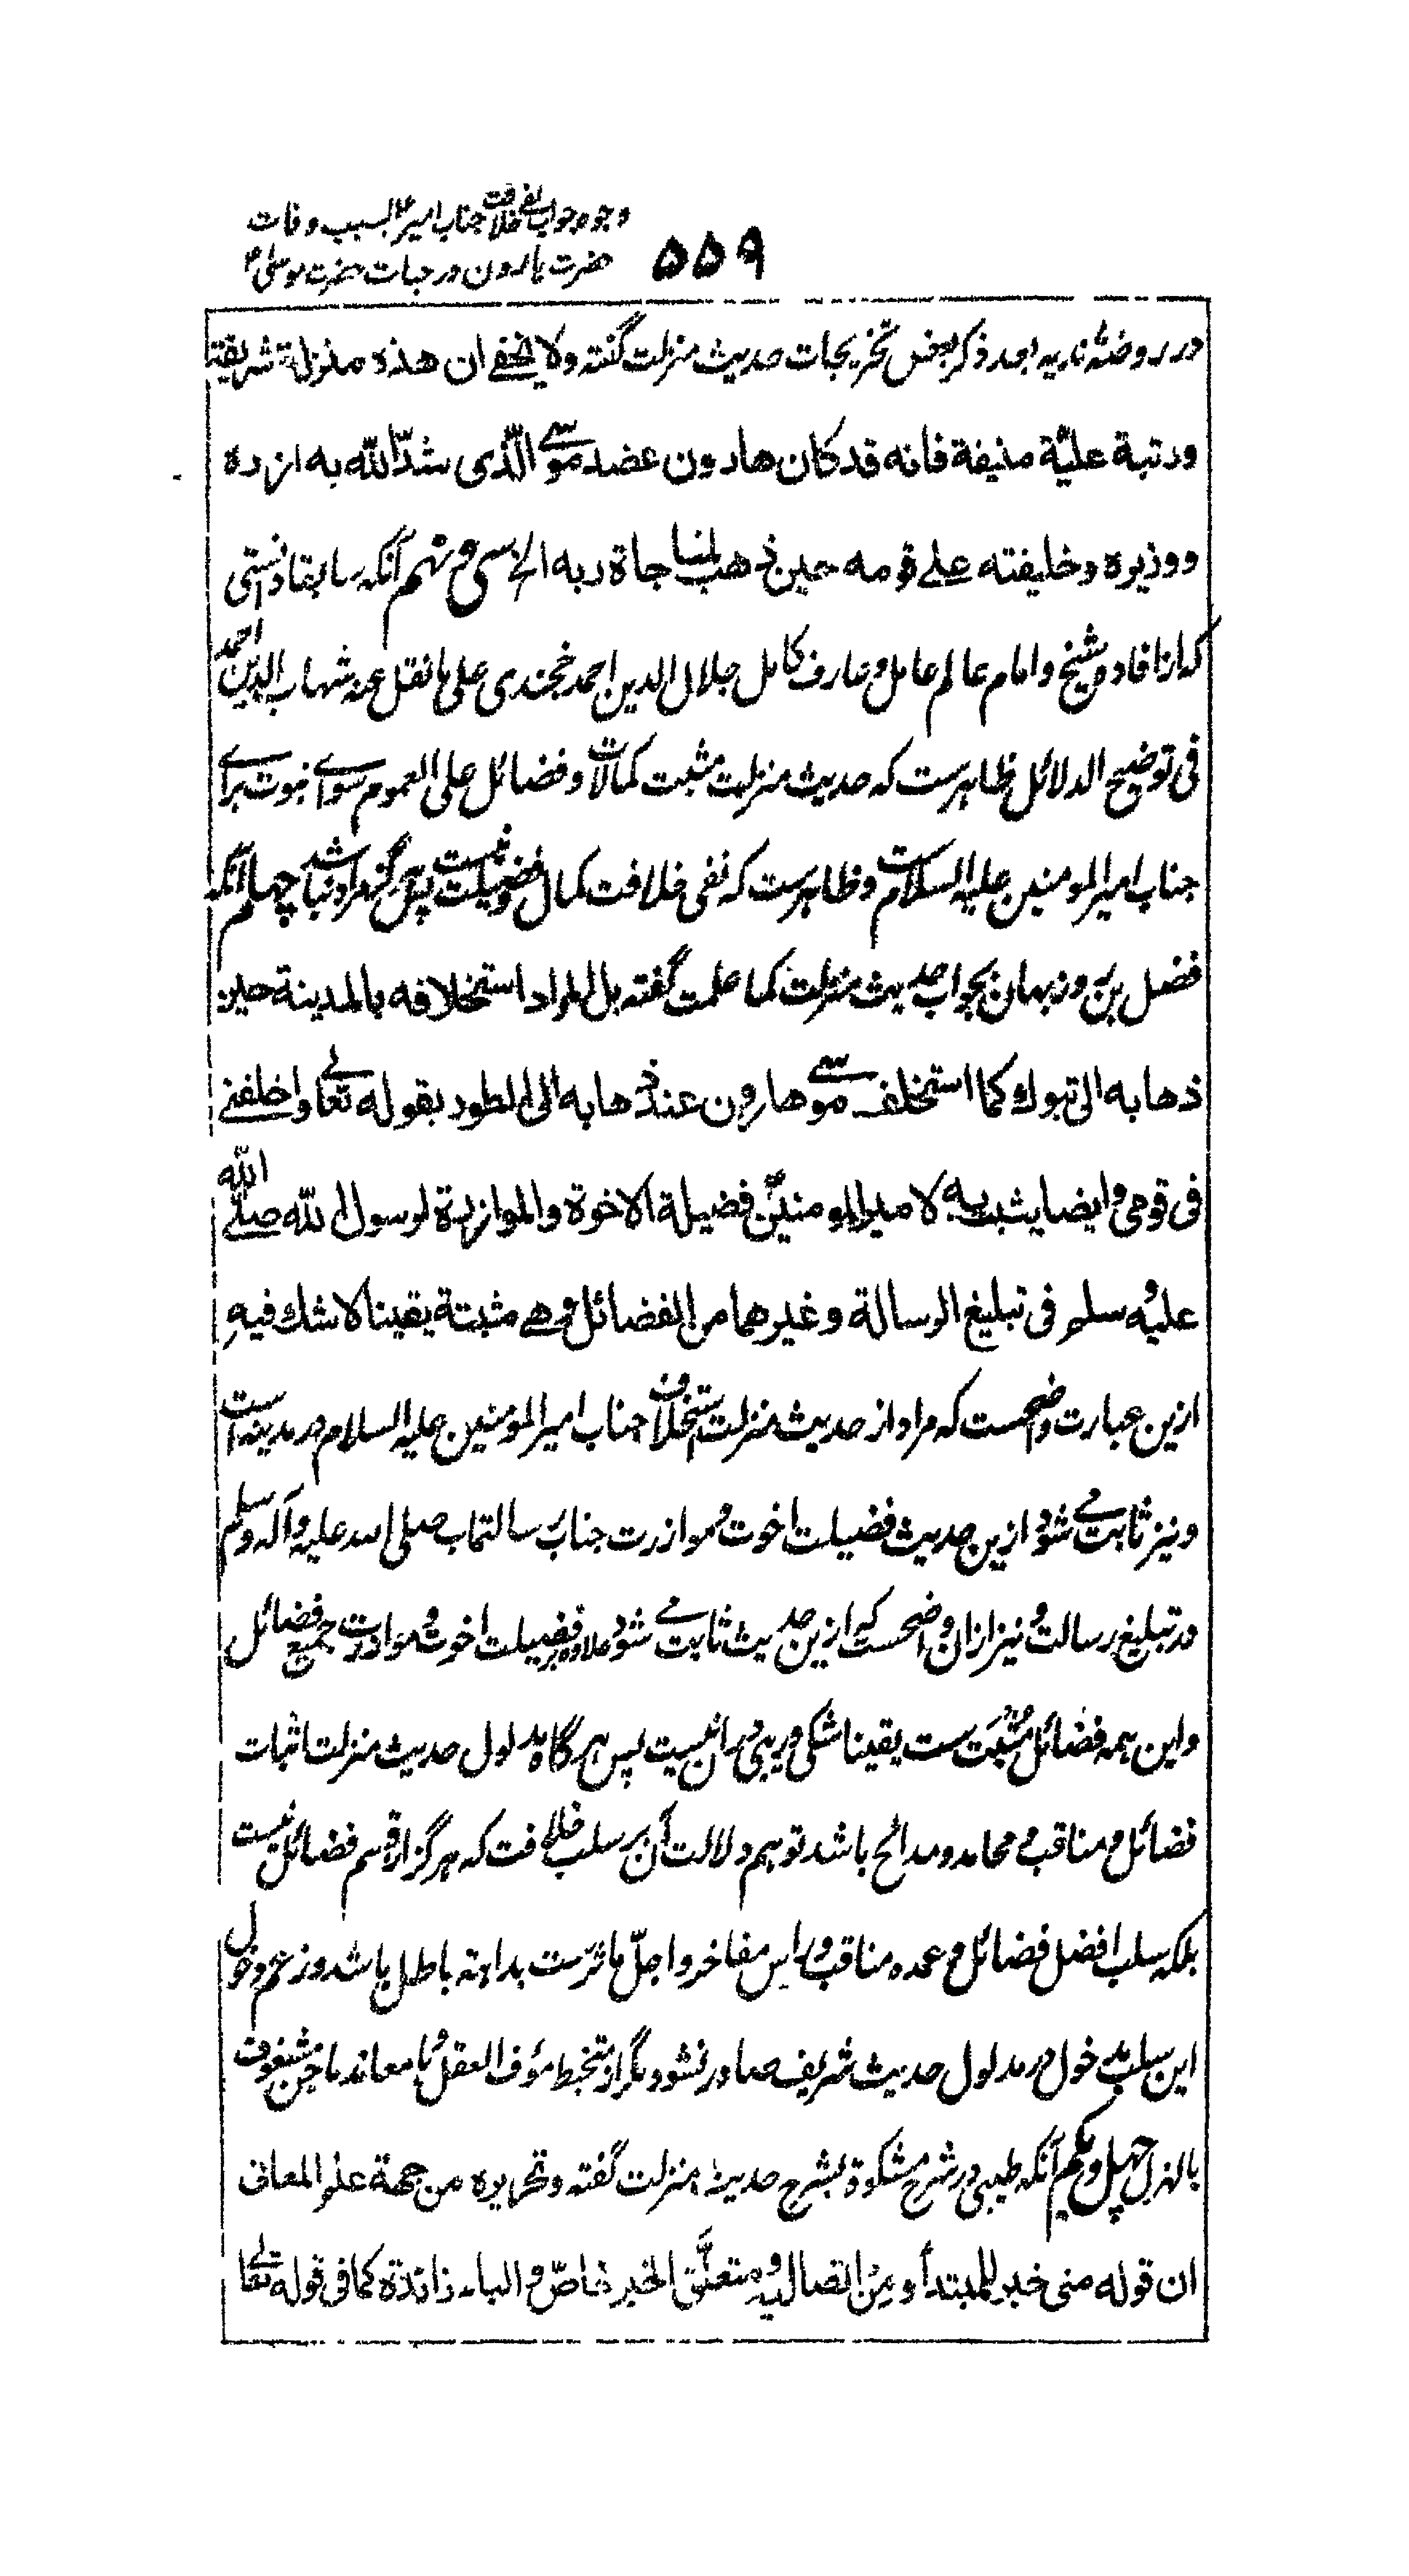 وجوه جواب نفی خلافت جناب امیر ع بسبب وفات
حضرت هارون در حیات حضرت موسی ع
۵۵۹
در روضهٔ ندیه بعد ذکر بعض تخریجات حدیث منزلت گفته ولا یخفی ان هذه منزلة شریفة
ورتبة علیّة منیفة فانه قد کان هارون عضد موسی الّذی شدّ الله به ازره
ووزیره وخلیفته علی قومه حین ذهب لمناجاة ربه الخ سی و نهم آنکه سابقا دانستی
که از افاده شیخ و امام عالم عامل و عارف کامل جلال الدین احمد خجندی علی ما نقل عنه شهاب الدین احمد
فی توضیح الدلائل ظاهرست که حدیث منزلت مثبت کمالات و فضائل علی العموم سوای نبوت برای
جناب امیر المومنین علیه السلام ست و ظاهرست که نفی خلافت کمال و فضیلت نیست پس هرگز مراد نباشد چهلم آنکه
فضل بن روزبهان بجواب حدیث منزلت کما علمت گفته بل المراد استخلافه بالمدینة حین
ذهابه الی تبوک کما استخلف موسی هارون عند ذهابه الی الطور بقوله تعالی واخلفنی
فی قومی وایضا یثبت به لامیر المومنینؑ فضیلة الاخوة والموازرة لرسول الله صلی الله
علیه وسلم فی تبلیغ الرسالة وغیرهما من الفضائل وهی مثبتة یقینا لا شک فیه
ازین عبارت واضحست که مراد از حدیث منزلت استخلاف جناب امیر المومنین علیه السلام در مدینه است
و نیز ثابت می شود ازین حدیث فضیلت اخوت و موازرت جناب رسالتمآب صلی الله علیه و آله وسلم
در تبلیغ رسالت و نیز ازان واضحست که ازین حدیث ثابت می شود علاوه بر فضیلت اخوت و موازرت جمیع فضائل
و این همه فضائل مثبت ست یقینا شکی و ریبی دران نیست پس هرگاه مدلول حدیث منزلت اثبات
فضائل و مناقب و محامد و مدائح باشد توهم دلالت آن بر سلب خلافت که هرگز از قسم فضائل نیست
بلکه سلب افضل فضائل و عمده مناقب و راس مفاخر و اجلّ مآثرست بداهة باطل باشد و زعم دخول
این سلب در مدلول حدیث شریف صادر نشود مگر از متخبط مؤف العقل و یا معاند ماجن مشغوف
بالهزل چهل و یکم آنکه طیبی در شرح مشکوة بشرح حدیث منزلت گفته وتحریره من جهة علم المعانی
ان قوله منی خبر للمبتدأ ومن اتصالیه ومتعلّق الخبر خاصّ والباء زائدة کما فی قوله تعالی